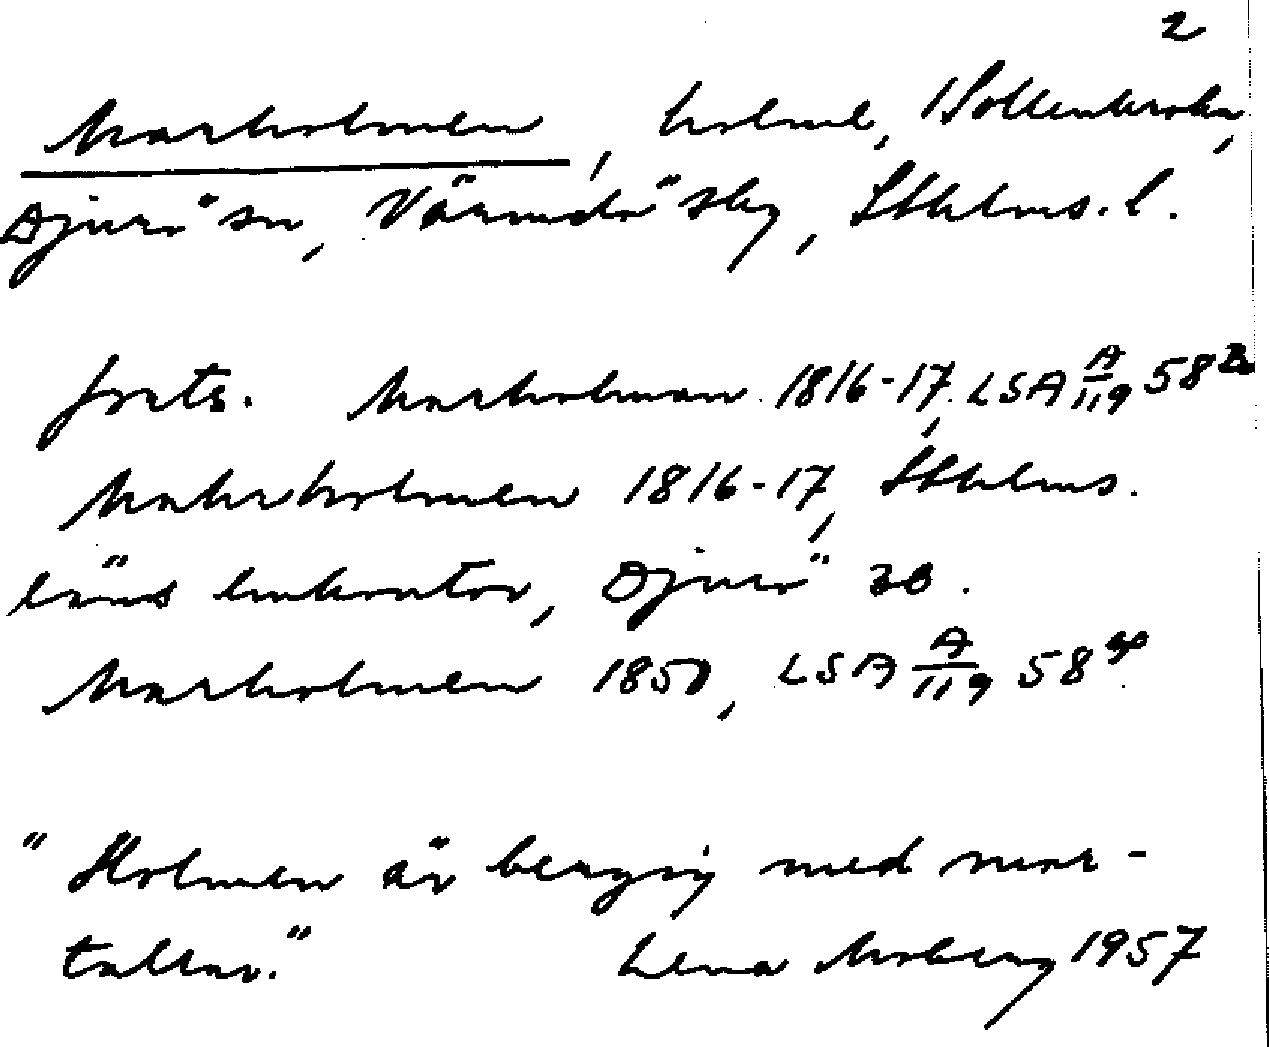 2
Marholmen, holme, Sollenkroka,
Djurö sn, Värmdö skg, Sthlms. l.
forts. Marholman 1816-17, LSA A/119 58
Mahrholmen 1816-17, Sthlms.
läns lmkontor, Djurö 20.
Marholmen 1850, LSA A/119 58
"Holmen är bergig med mar-
tallar." Lena Moberg 1957